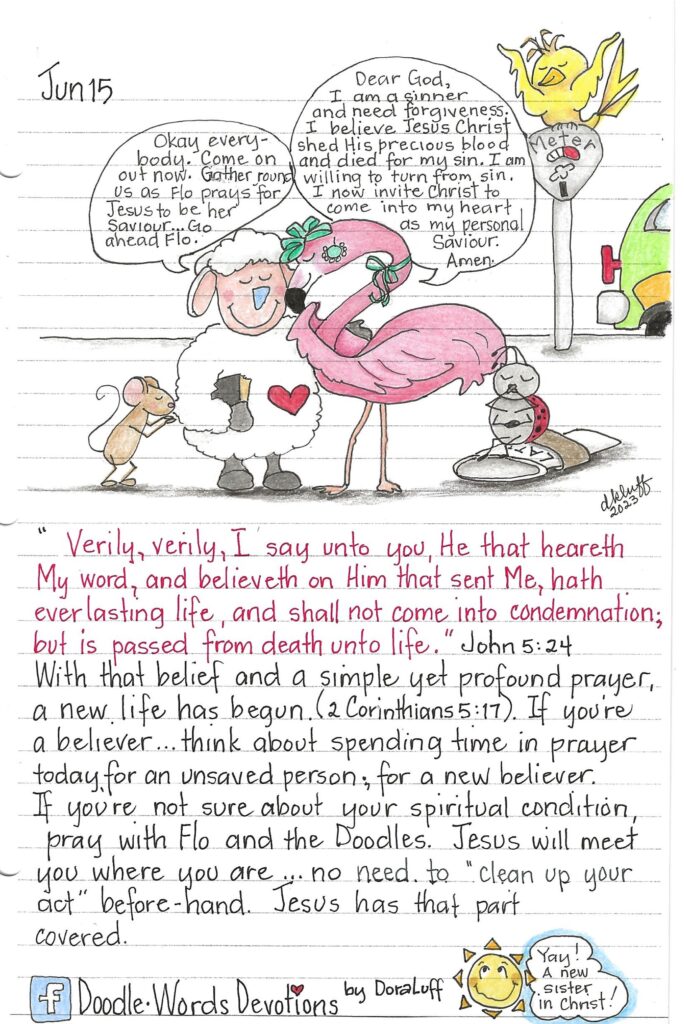 Jun 15
Okay every-
body. Come on
out now. Gather round
us as Flo prays for
Jesus to be her
Saviour... Go
ahead Flo.
Dear God,
I am a sinner
and need forgiveness.
I believe Jesus Christ
shed His precious blood
and died for my sin. I am
willing to turn from sin.
I now invite Christ to
come into my heart
as my personal
Saviour.
Amen.
Meter
dkluff
2023
" Verily, verily, I say unto you, He that heareth
My word, and believeth on Him that sent Me, hath
everlasting life, and shall not come into condemnation;
but is passed from death unto life." John 5:24
With that belief and a simple yet profound prayer,
a new life has begun. (2 Corinthians 5:17). If you're
a believer... think about spending time in prayer
today, for an unsaved person; for a new believer.
If you're not sure about your spiritual condition,
pray with Flo and the Doodles. Jesus will meet
you where you are ... no need to "clean up your
act" before-hand. Jesus has that part
covered.
f Doodle•Words Devotions by Dora Luff
Yay!
A new
sister
in Christ!